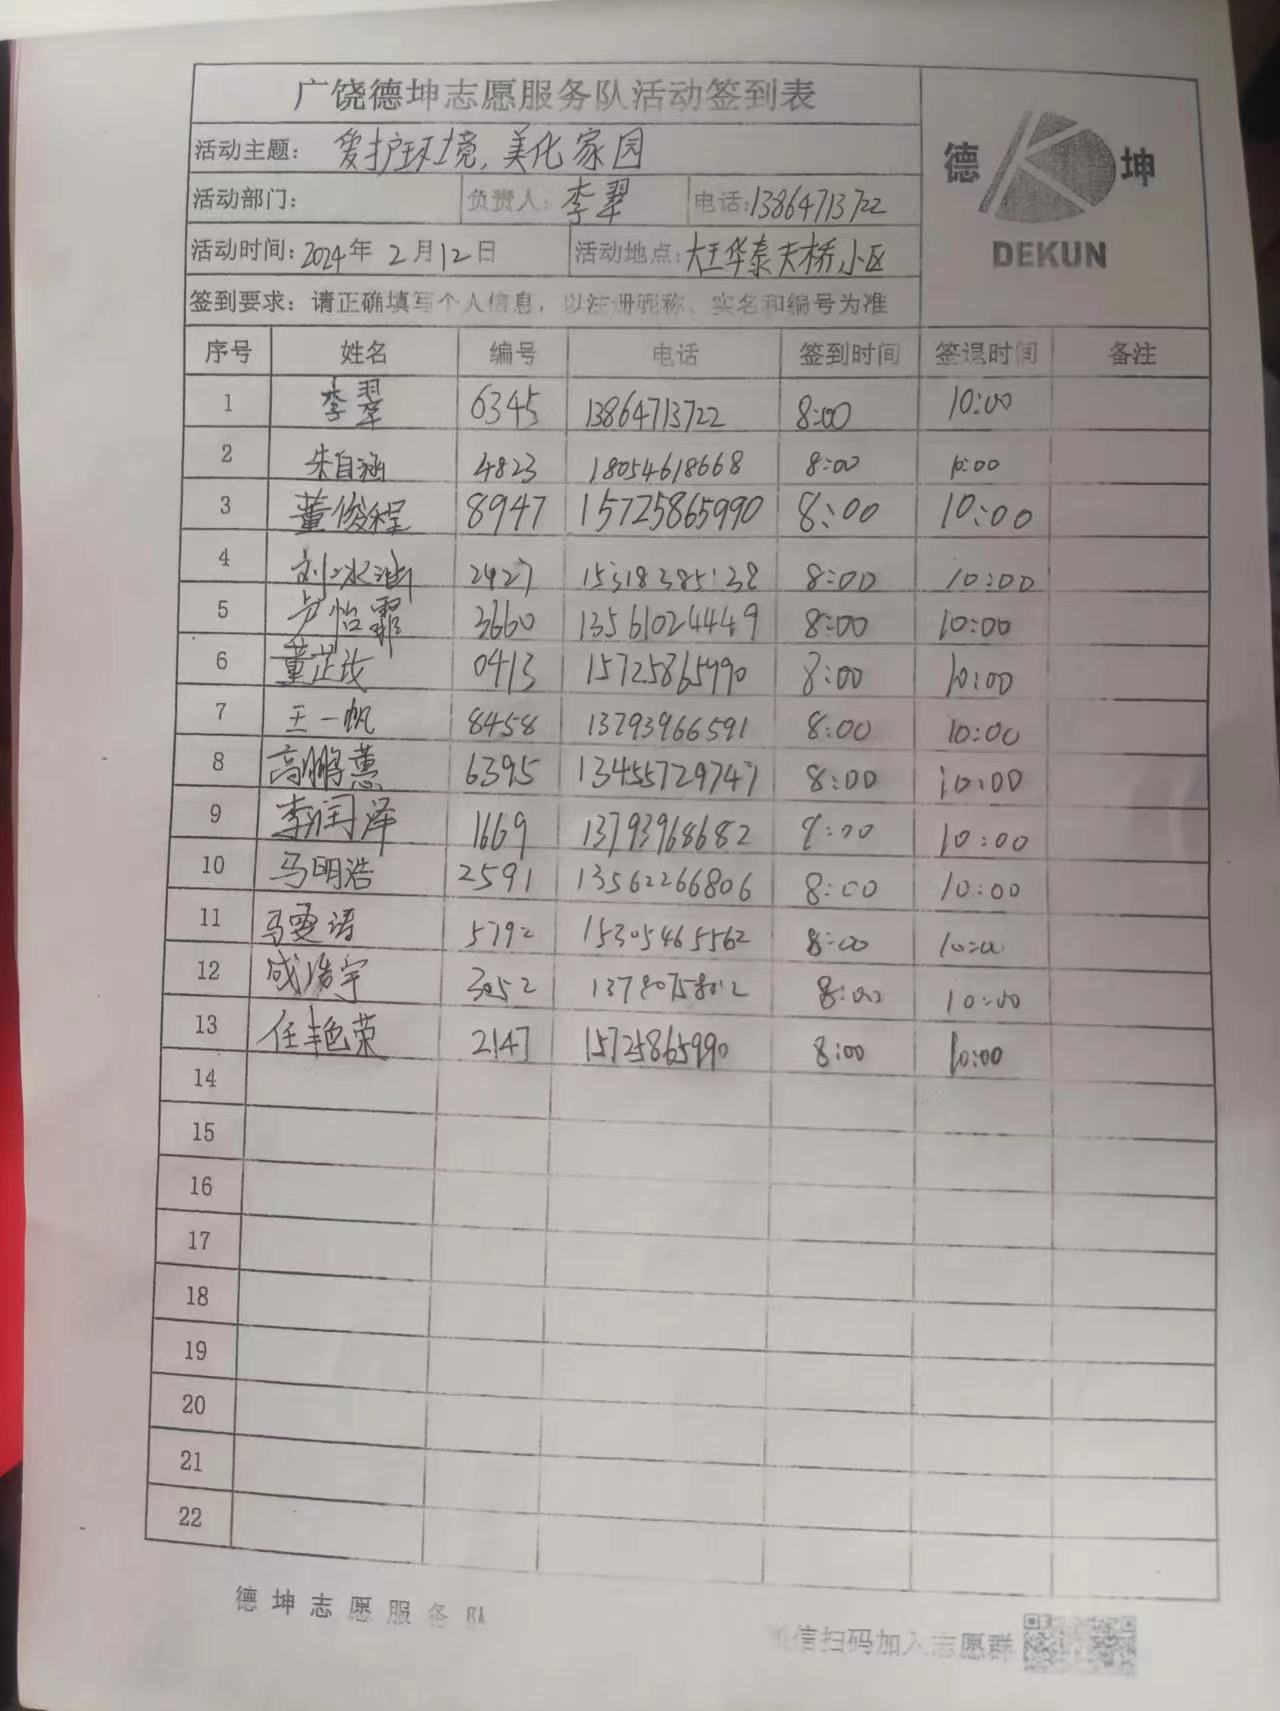 广饶德坤志愿服务队活动签到表
德 坤
DEKUN
活动主题: 爱护环境,美化家园
活动部门: 负责人: 李翠 电话: 13864713722
活动时间: 2024年 2月12日 活动地点: 大王华泰天桥小区
签到要求: 请正确填写个人信息, 以注册昵称、实名和编号为准
序号 姓名 编号 电话 签到时间 签退时间 备注
1 李翠 6345 13864713722 8:00 10:00
2 朱自涵 4823 18054618668 8:00 10:00
3 董俊程 8947 15725865990 8:00 10:00
4 2427 15318385138 8:00 10:00
5 卢怡霏 3660 13561024449 8:00 10:00
6 董芷改 0413 15725865990 8:00 10:00
7 王一帆 8458 13793966591 8:00 10:00
8 高鹏蕙 6395 13455729747 8:00 10:00
9 李润泽 1669 13793968682 8:00 10:00
10 马明浩 2591 13562266806 8:00 10:00
11 马雯诺 5792 15305465562 8:00 10:00
12 成浩宇 3052 8:00 10:00
13 任艳荣 2147 15725865990 8:00 10:00
14
15
16
17
18
19
20
21
22
德坤志愿服务队
微信扫码加入志愿群